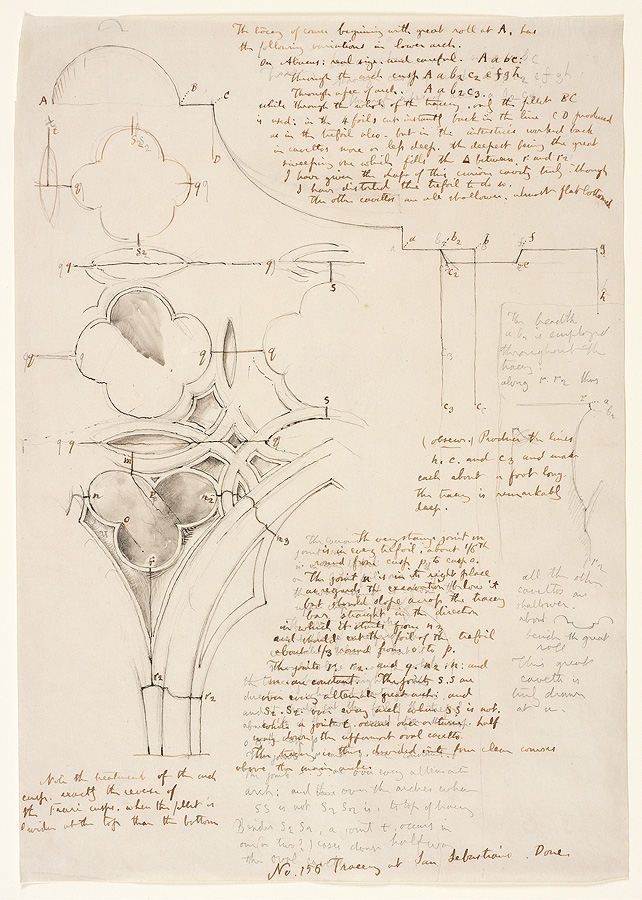 The tracery of course beginning with great roll at A, has
the following variations in lower arch.
On Abacus: real size and careful. A a b c.
Through the arch cusp A a b2 c2 e f g h
Through apse of arch. A a b2 c3.
while through the whole of the tracery, only the fillet BC
is used; in the 4 foils cut instantly back in the line C D produced
as in the trefoil also. but in the interstices worked back
in cavettos more or less deep. the deepest being the great
sweeping one which fills the Δ between r and r2
I have given the shape of this curious cavetto truly though
I have distorted the trefoil to do so.
The other cavettos are all shallower. almost flat bottomed
A
B
C
D
t
S2
q
q
S2
q
q
q
S
a
b2
b
f
g
c2
e
h
c3
c3
c
q
q
S
q
q
q
m
n
n2
n3
o
p
r2
r2
The breadth
a b2 is employed
throughout the
tracery
along r. r2 thus
r
a
b2
r2
(observe.) Produce the lines
h. c. and c3 and make
each about a foot long.
the tracery is remarkably
deep.
The very strange joint m
is in every trefoil. about 1/6th
round from cusp p to cusp o.
The joint n is in its right place
as regards the excavation below it
but should slope across the tracery
bar straight in the direction
in which it starts from n3
and should cut the foil of the trefoil
about 1/3 round from o to p.
The joints r2 r2. and q. n2. n: and
are constant. The joints S.S are
over every alternate great arch; and
S2. S2. over every arch where SS is not.
while a joint t. occurs once or twice. half
way down the uppermost oval cavetto.
The tracery is thus divided into four clean courses
above the main arche.
over every alternate
arch; and thus over the arches where
SS is not S2 S2 is, to top of tracery
Besides S2 S2, a joint t, occurs in
one or two? cases down halfway
the oval
all the other
cavettos are
shallower.
about
beside the great
roll
This great
cavetto is
truly drawn
at u.
Note the treatment of the arch
cusp. exactly the reverse of
the cusps. when the fillet is
wider at the top than the bottom
No. 156 Tracery at San Sebastiano. Done.